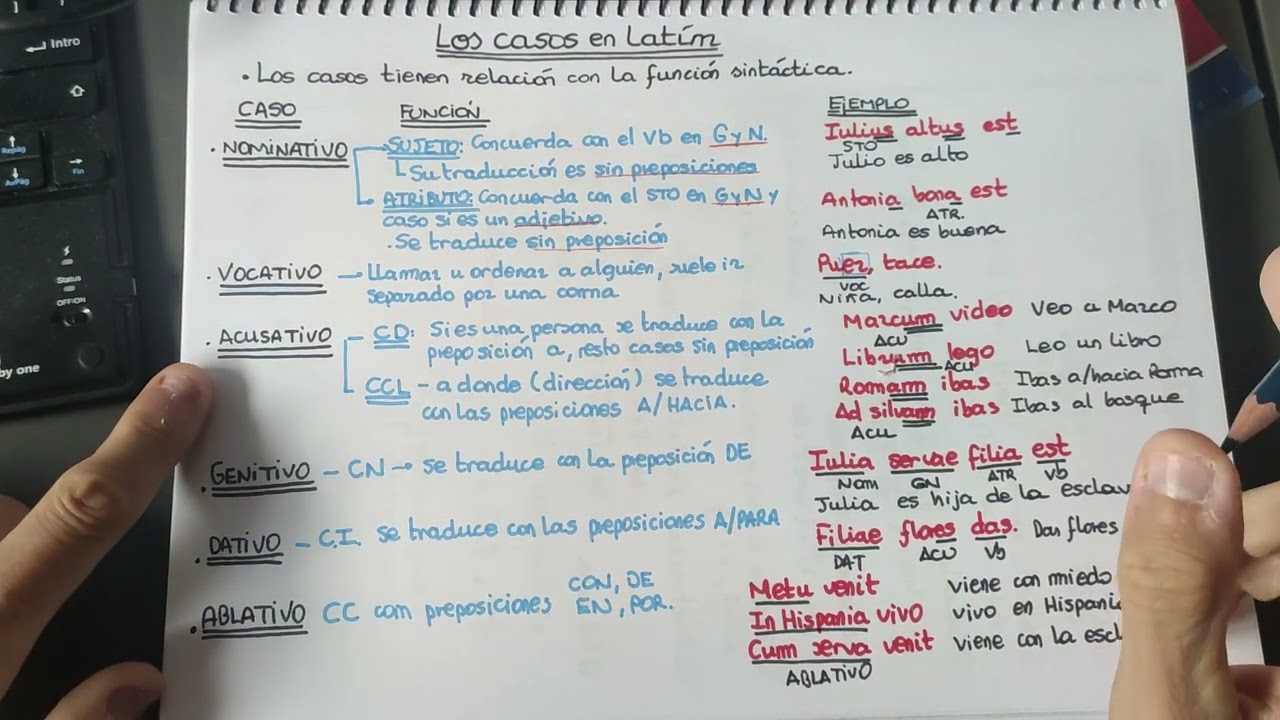 Los casos en Latím
• Los casos tienen relación con la función sintáctica.
CASO FUNCIÓN EJEMPLO
• NOMINATIVO SUJETO: Concuerda con el Vb en G y N.
Su traducción es sin preposiciones
ATRIBUTO: Concuerda con el STO en G y N y
caso si es un adjetivo.
• Se traduce sin preposición
Iulius altus est
STO
Julio es alto
Antonia bona est
ATR.
Antonia es buena
• VOCATIVO — Llamar u ordenar a alguien, suele ir
separado por una coma
Puer, tace.
VOC
Niña, calla.
• ACUSATIVO CD: Si es una persona se traduce con la
preposición a, resto casos sin preposición
CCL - a donde (dirección) se traduce
con las preposiciones A/HACIA.
Marcum video Veo a Marco
ACU
Librum lego Leo un libro
ACU
Romam ibas Ibas a/hacia Roma
Ad silvam ibas Ibas al bosque
ACU
• GENITIVO – CN → se traduce con la preposición DE
Iulia servae filia est
Nom GN ATR Vb
Julia es hija de la esclav
• DATIVO – C.I. se traduce con las preposiciones A/PARA
Filiae flores das. Das flores
DAT ACU Vb
• ABLATIVO CC com preposiciones CON, DE
EN, POR.
Metu venit viene con miedo
In Hispania vivo vivo en Hispani
Cum serva venit viene con la escl
ABLATIVO
Intro
RePág
AvPág
Fin
Status
ON/OFF
by one